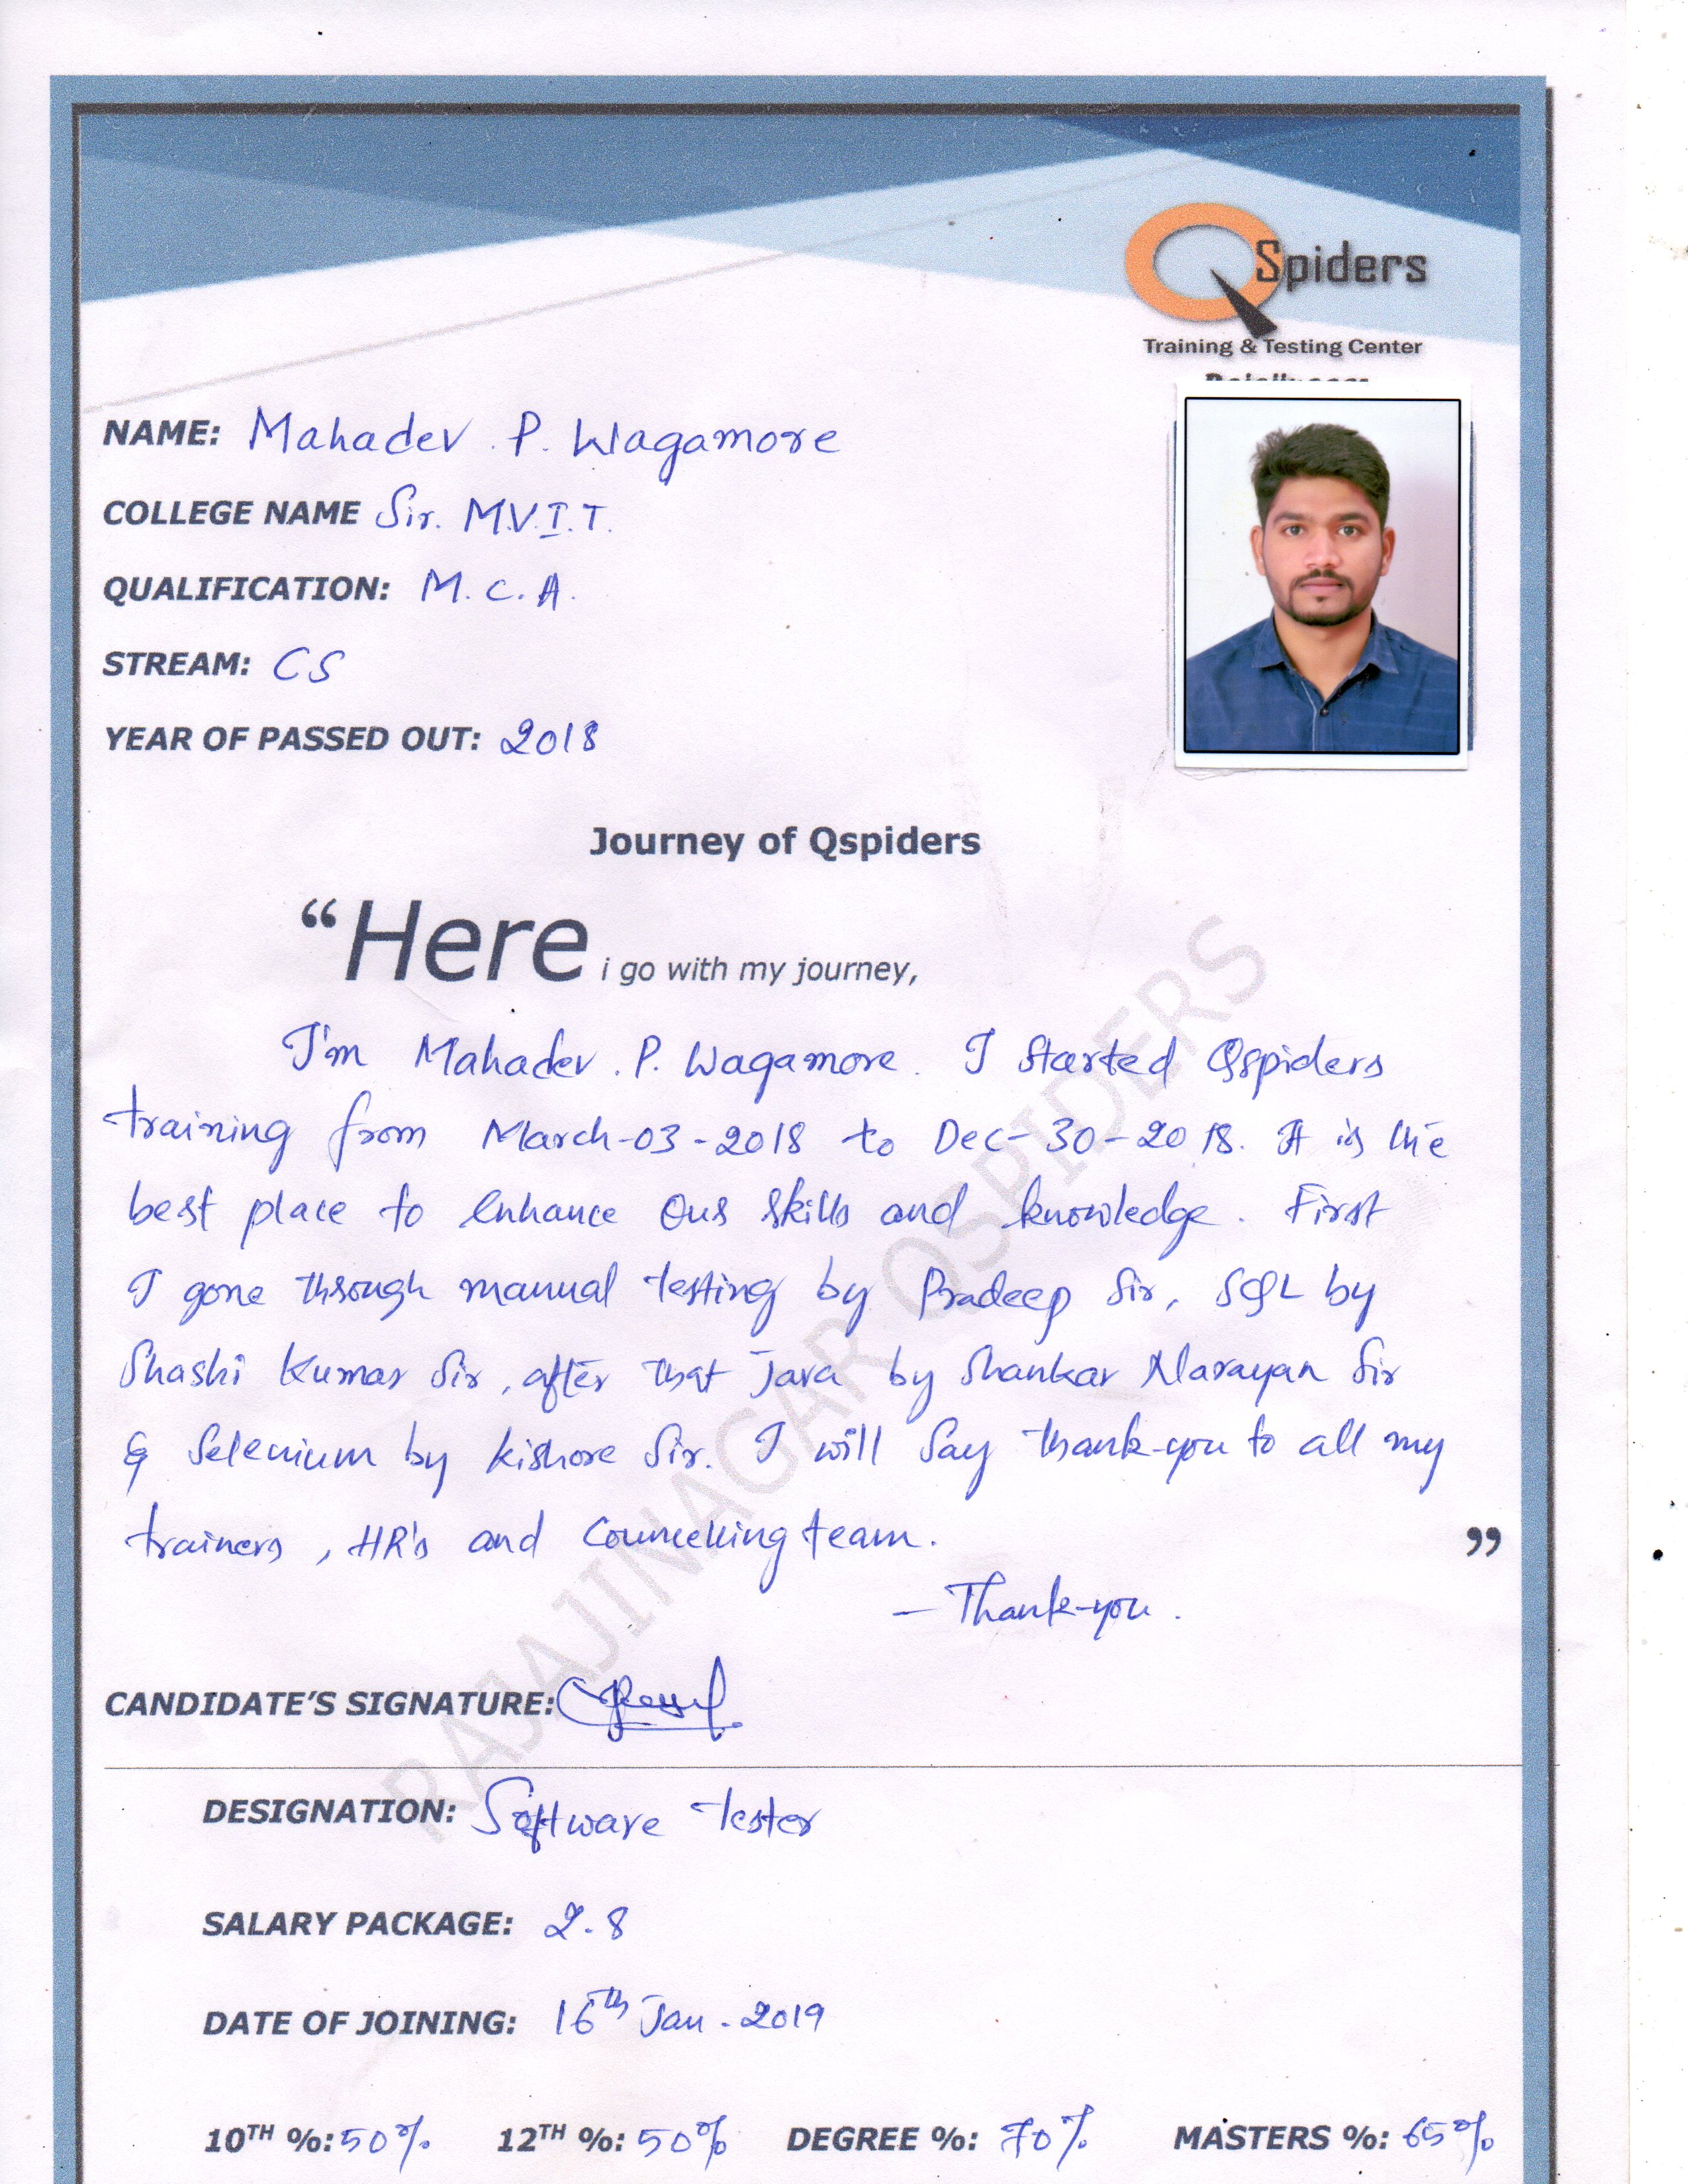 QSpiders
Training & Testing Center
NAME: Mahadev. P. Wagamore
COLLEGE NAME Sir. M.V.I.T.
QUALIFICATION: M.C.A.
STREAM: CS
YEAR OF PASSED OUT: 2018
Journey of Qspiders
“Here i go with my journey,
I'm Mahadev. P. Wagamore. I started Qspiders
training from March-03-2018 to Dec-30-2018. It is the
best place to enhance our skills and knowledge. First
I gone through manual testing by Pradeep Sir, SQL by
Shashi Kumar Sir, after that Java by Shankar Narayan Sir
& Selenium by Kishore Sir. I will say thank-you to all my
trainers, HR's and Councelling team. ”
- Thank-you.
CANDIDATE'S SIGNATURE:
DESIGNATION: Software tester
SALARY PACKAGE: 2.8
DATE OF JOINING: 16th Jan - 2019
10TH %: 50% 12TH %: 50% DEGREE %: 70% MASTERS %: 65%
RAJAJINAGAR QSPIDERS